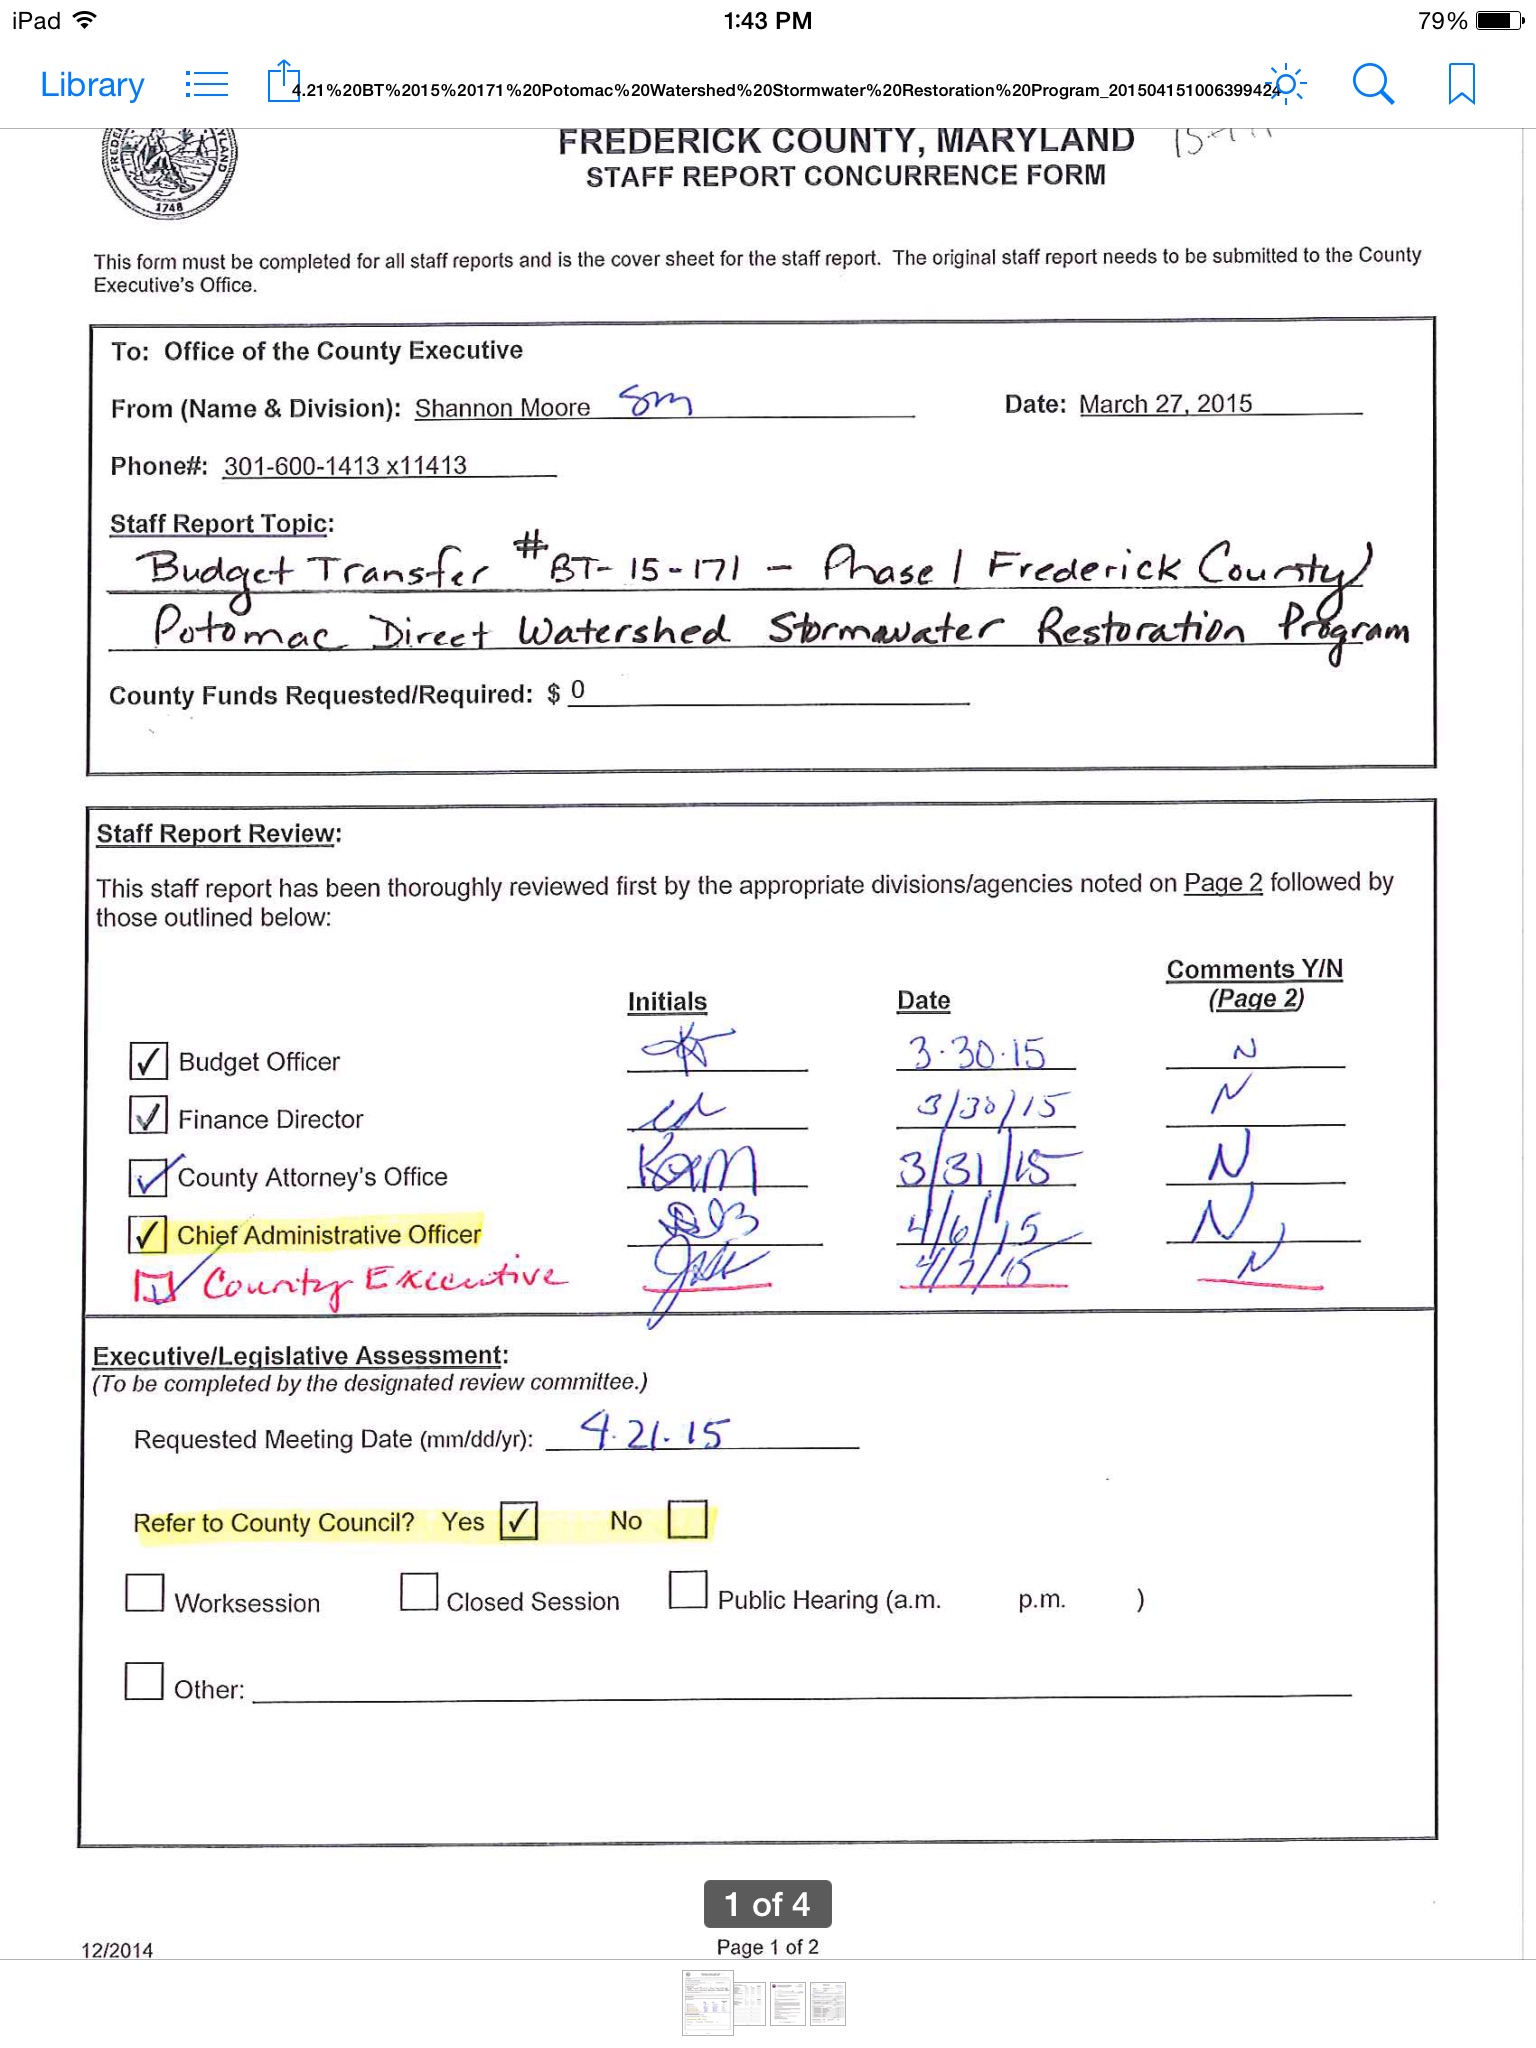 iPad
1:43 PM
79%
Library
4.21%20BT%2015%20171%20Potomac%20Watershed%20Stormwater%20Restoration%20Program_201504151006399424
FREDERICK COUNTY, MARYLAND
STAFF REPORT CONCURRENCE FORM
1748
This form must be completed for all staff reports and is the cover sheet for the staff report. The original staff report needs to be submitted to the County
Executive's Office.
To: Office of the County Executive
From (Name & Division): Shannon Moore Sm
Date: March 27, 2015
Phone#: 301-600-1413 x11413
Staff Report Topic:
Budget Transfer #BT-15-171 - Phase 1 Frederick County
Potomac Direct Watershed Stormwater Restoration Program
County Funds Requested/Required: $ 0
Staff Report Review:
This staff report has been thoroughly reviewed first by the appropriate divisions/agencies noted on Page 2 followed by
those outlined below:
Initials Date Comments Y/N
(Page 2)
Budget Officer 3.30.15 N
Finance Director 3/30/15 N
County Attorney's Office 3/31/15 N
Chief Administrative Officer 4/6/15 N
County Executive 4/7/15 N
Executive/Legislative Assessment:
(To be completed by the designated review committee.)
Requested Meeting Date (mm/dd/yr): 4.21.15
Refer to County Council? Yes ✓ No
Worksession Closed Session Public Hearing (a.m. p.m. )
Other:
1 of 4
12/2014
Page 1 of 2